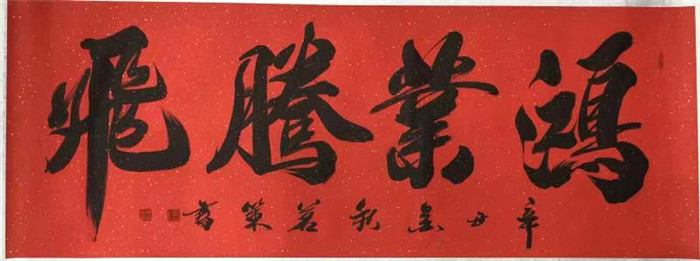 鴻業騰飛
辛丑年秋若策書